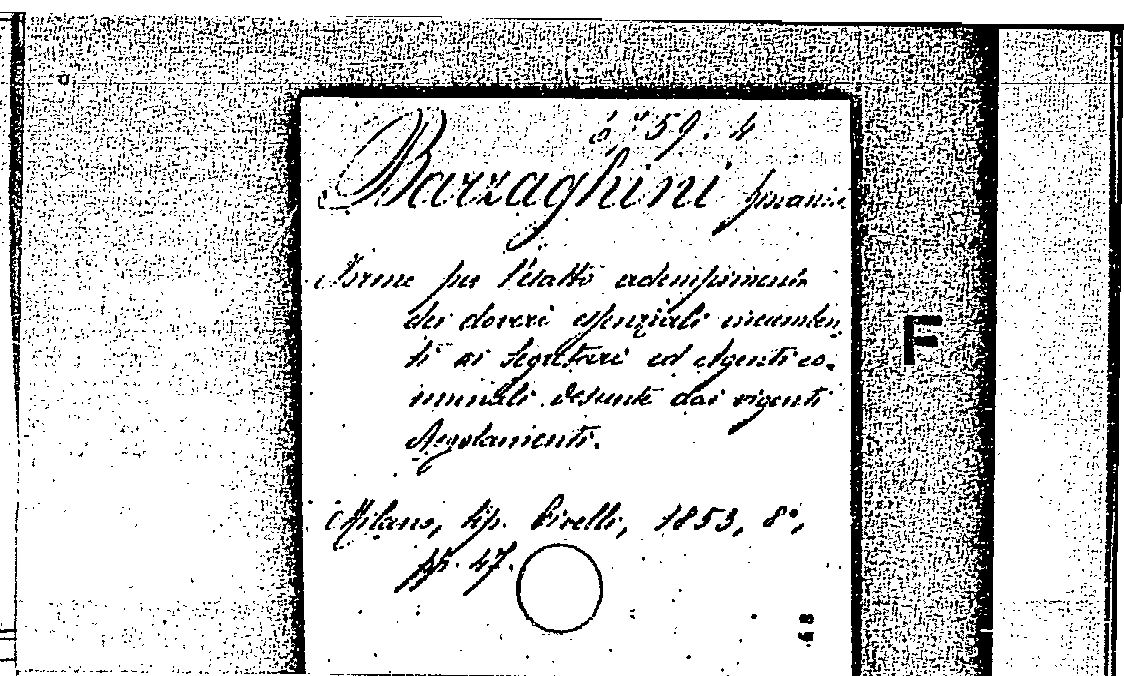 59. 4
Barzaghini
Norme per l'esatto adempimento
dei doveri essenziali incumben-
ti ai Segretari ed Agenti co-
munali desunte dai vigenti
Regolamenti.
Milano, tip. Pirelli, 1853, 8°,
pp. 47.
F